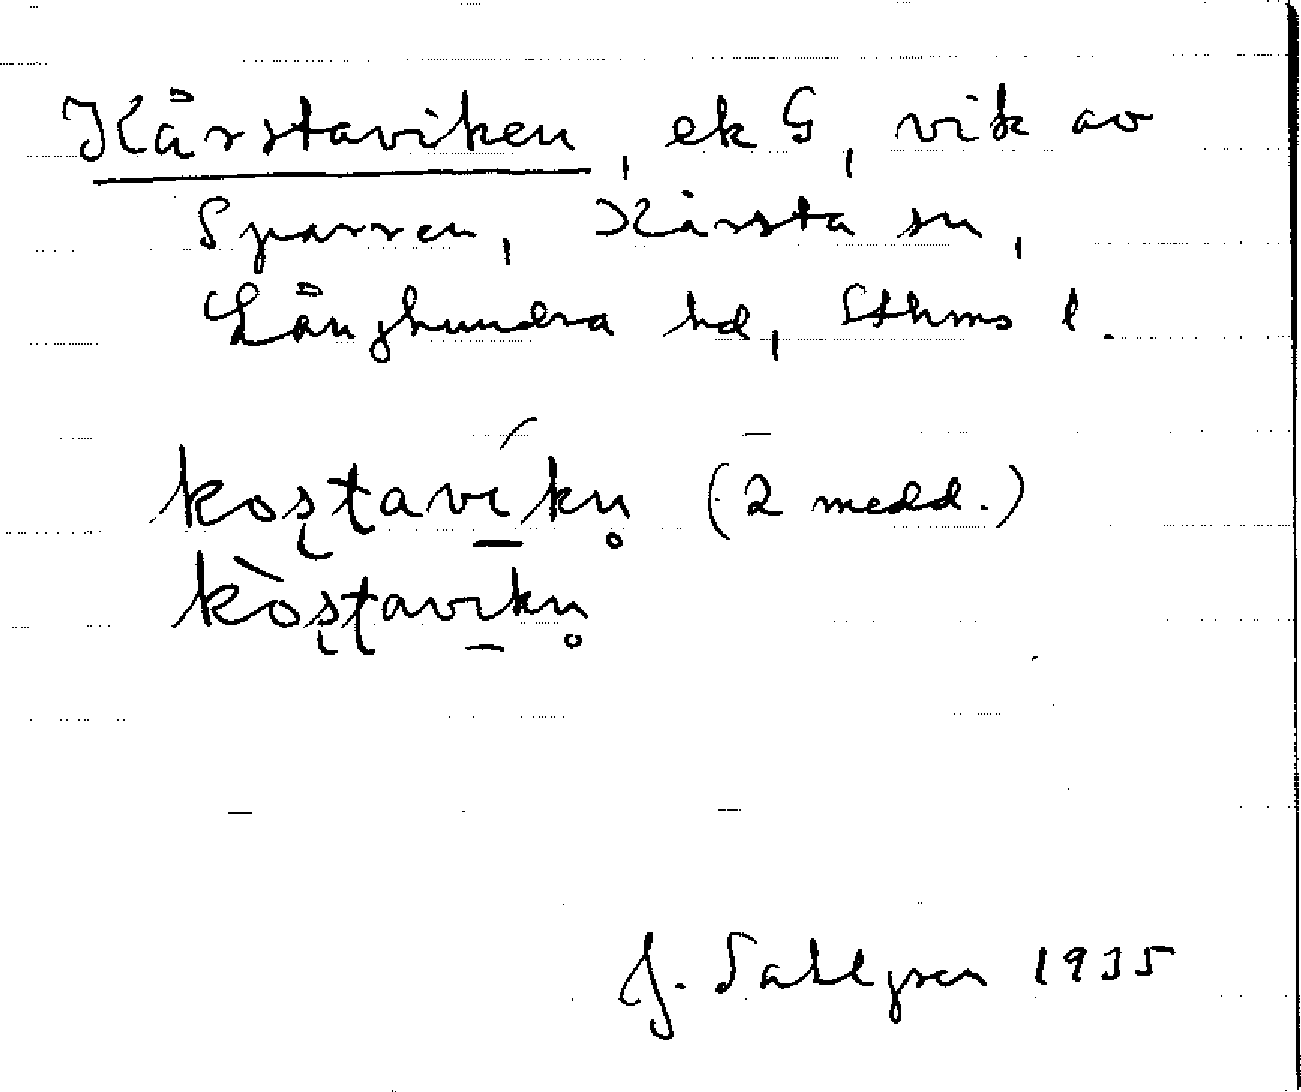 Kårstaviken, ek G, vik av
Sparren, Kårsta sn,
Långhundra hd, Sthms l.
kos̨ţaví̲kn̥ (2 medd.)
kòs̨ţavi̲kn̥
J. Sahlgren 1935